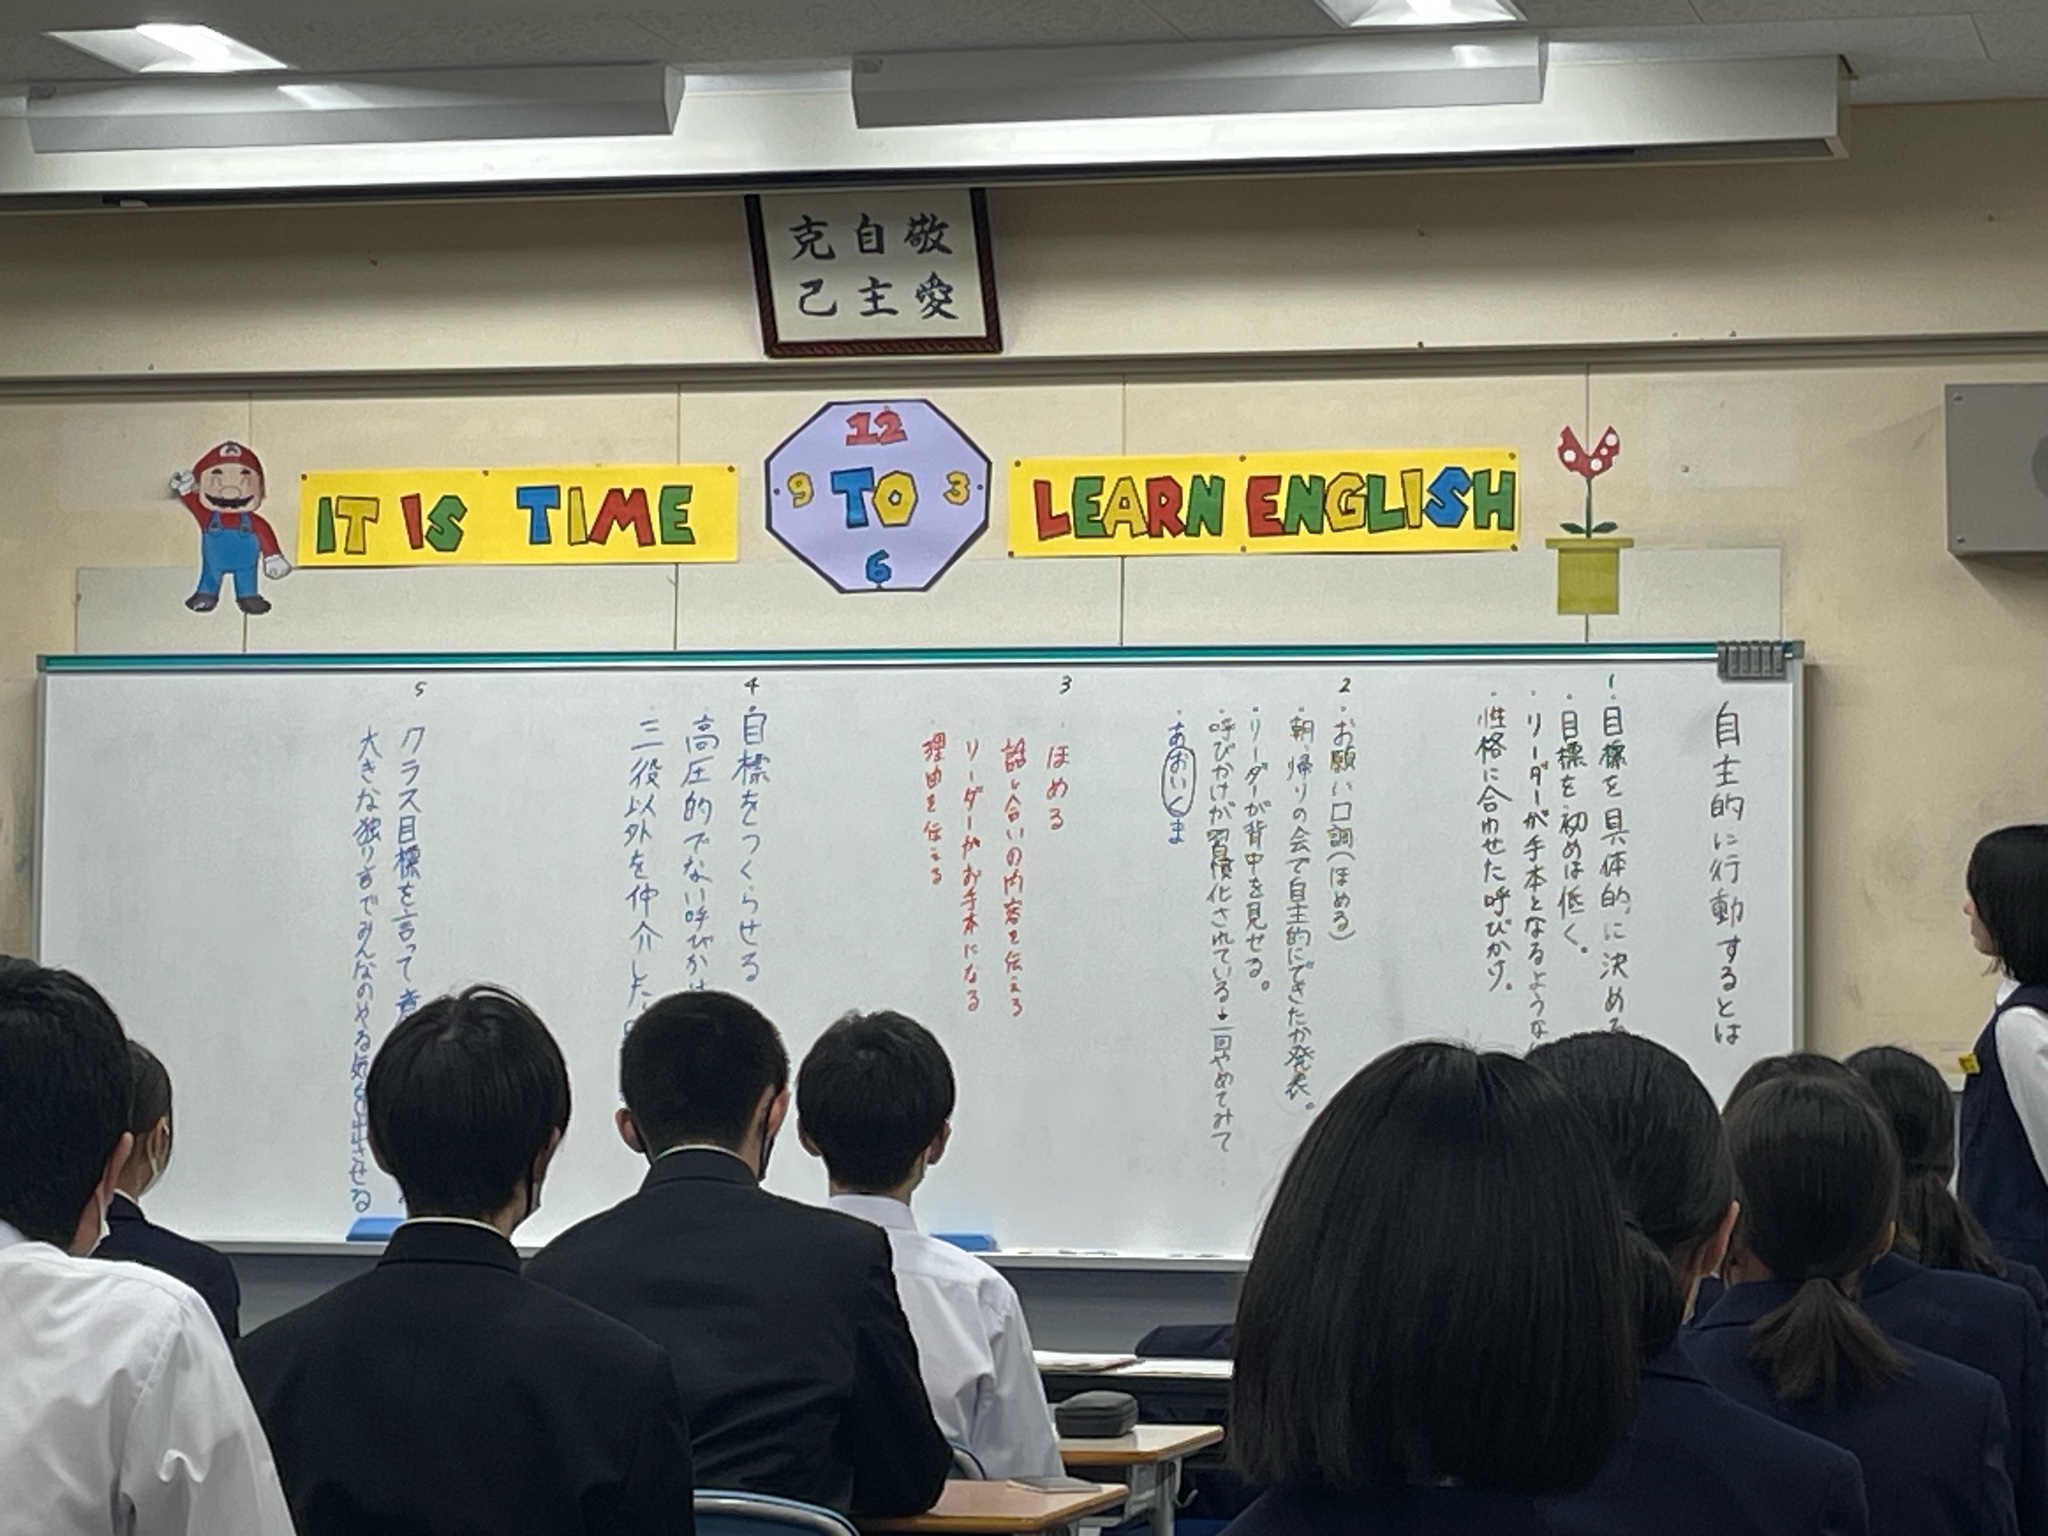 敬愛
自主
克己
IT IS TIME
12
9 TO 3
6
LEARN ENGLISH
自主的に行動するとは
1
・目標を具体的に決める
・目標を初めは低く。
・リーダーが手本となるような
・性格に合わせた呼びかけ。
2
・お願い口調(ほめる)
・朝、帰りの会で自主的にできたか発表。
・リーダーが背中を見せる。
・呼びかけが習慣化されている→一回やめてみて…
・あおいくま
3
・ほめる
・話し合いの内容を伝える
・リーダーがお手本になる
・理由を伝える
4
・目標をつくらせる
高圧的でない呼びかけ
三役以外を仲介した
5
クラス目標を言って意
大きな独り言でみんなのやる気を出させる